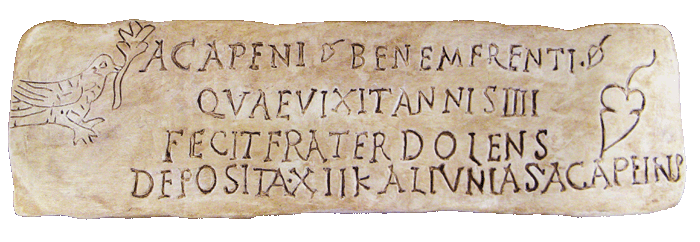 ACAPENI BENEMERENTI.
QVAEVIXITANNISIIII
FECITFRATERDOLENS
DEPOSITAXIIKALIVNIASACAPEINUS